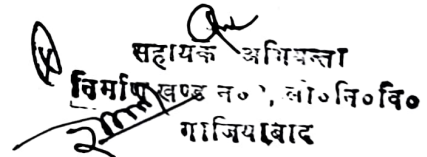 सहायक अभियन्ता
निर्माण खण्ड न० , लो०नि०वि०
गाजियाबाद